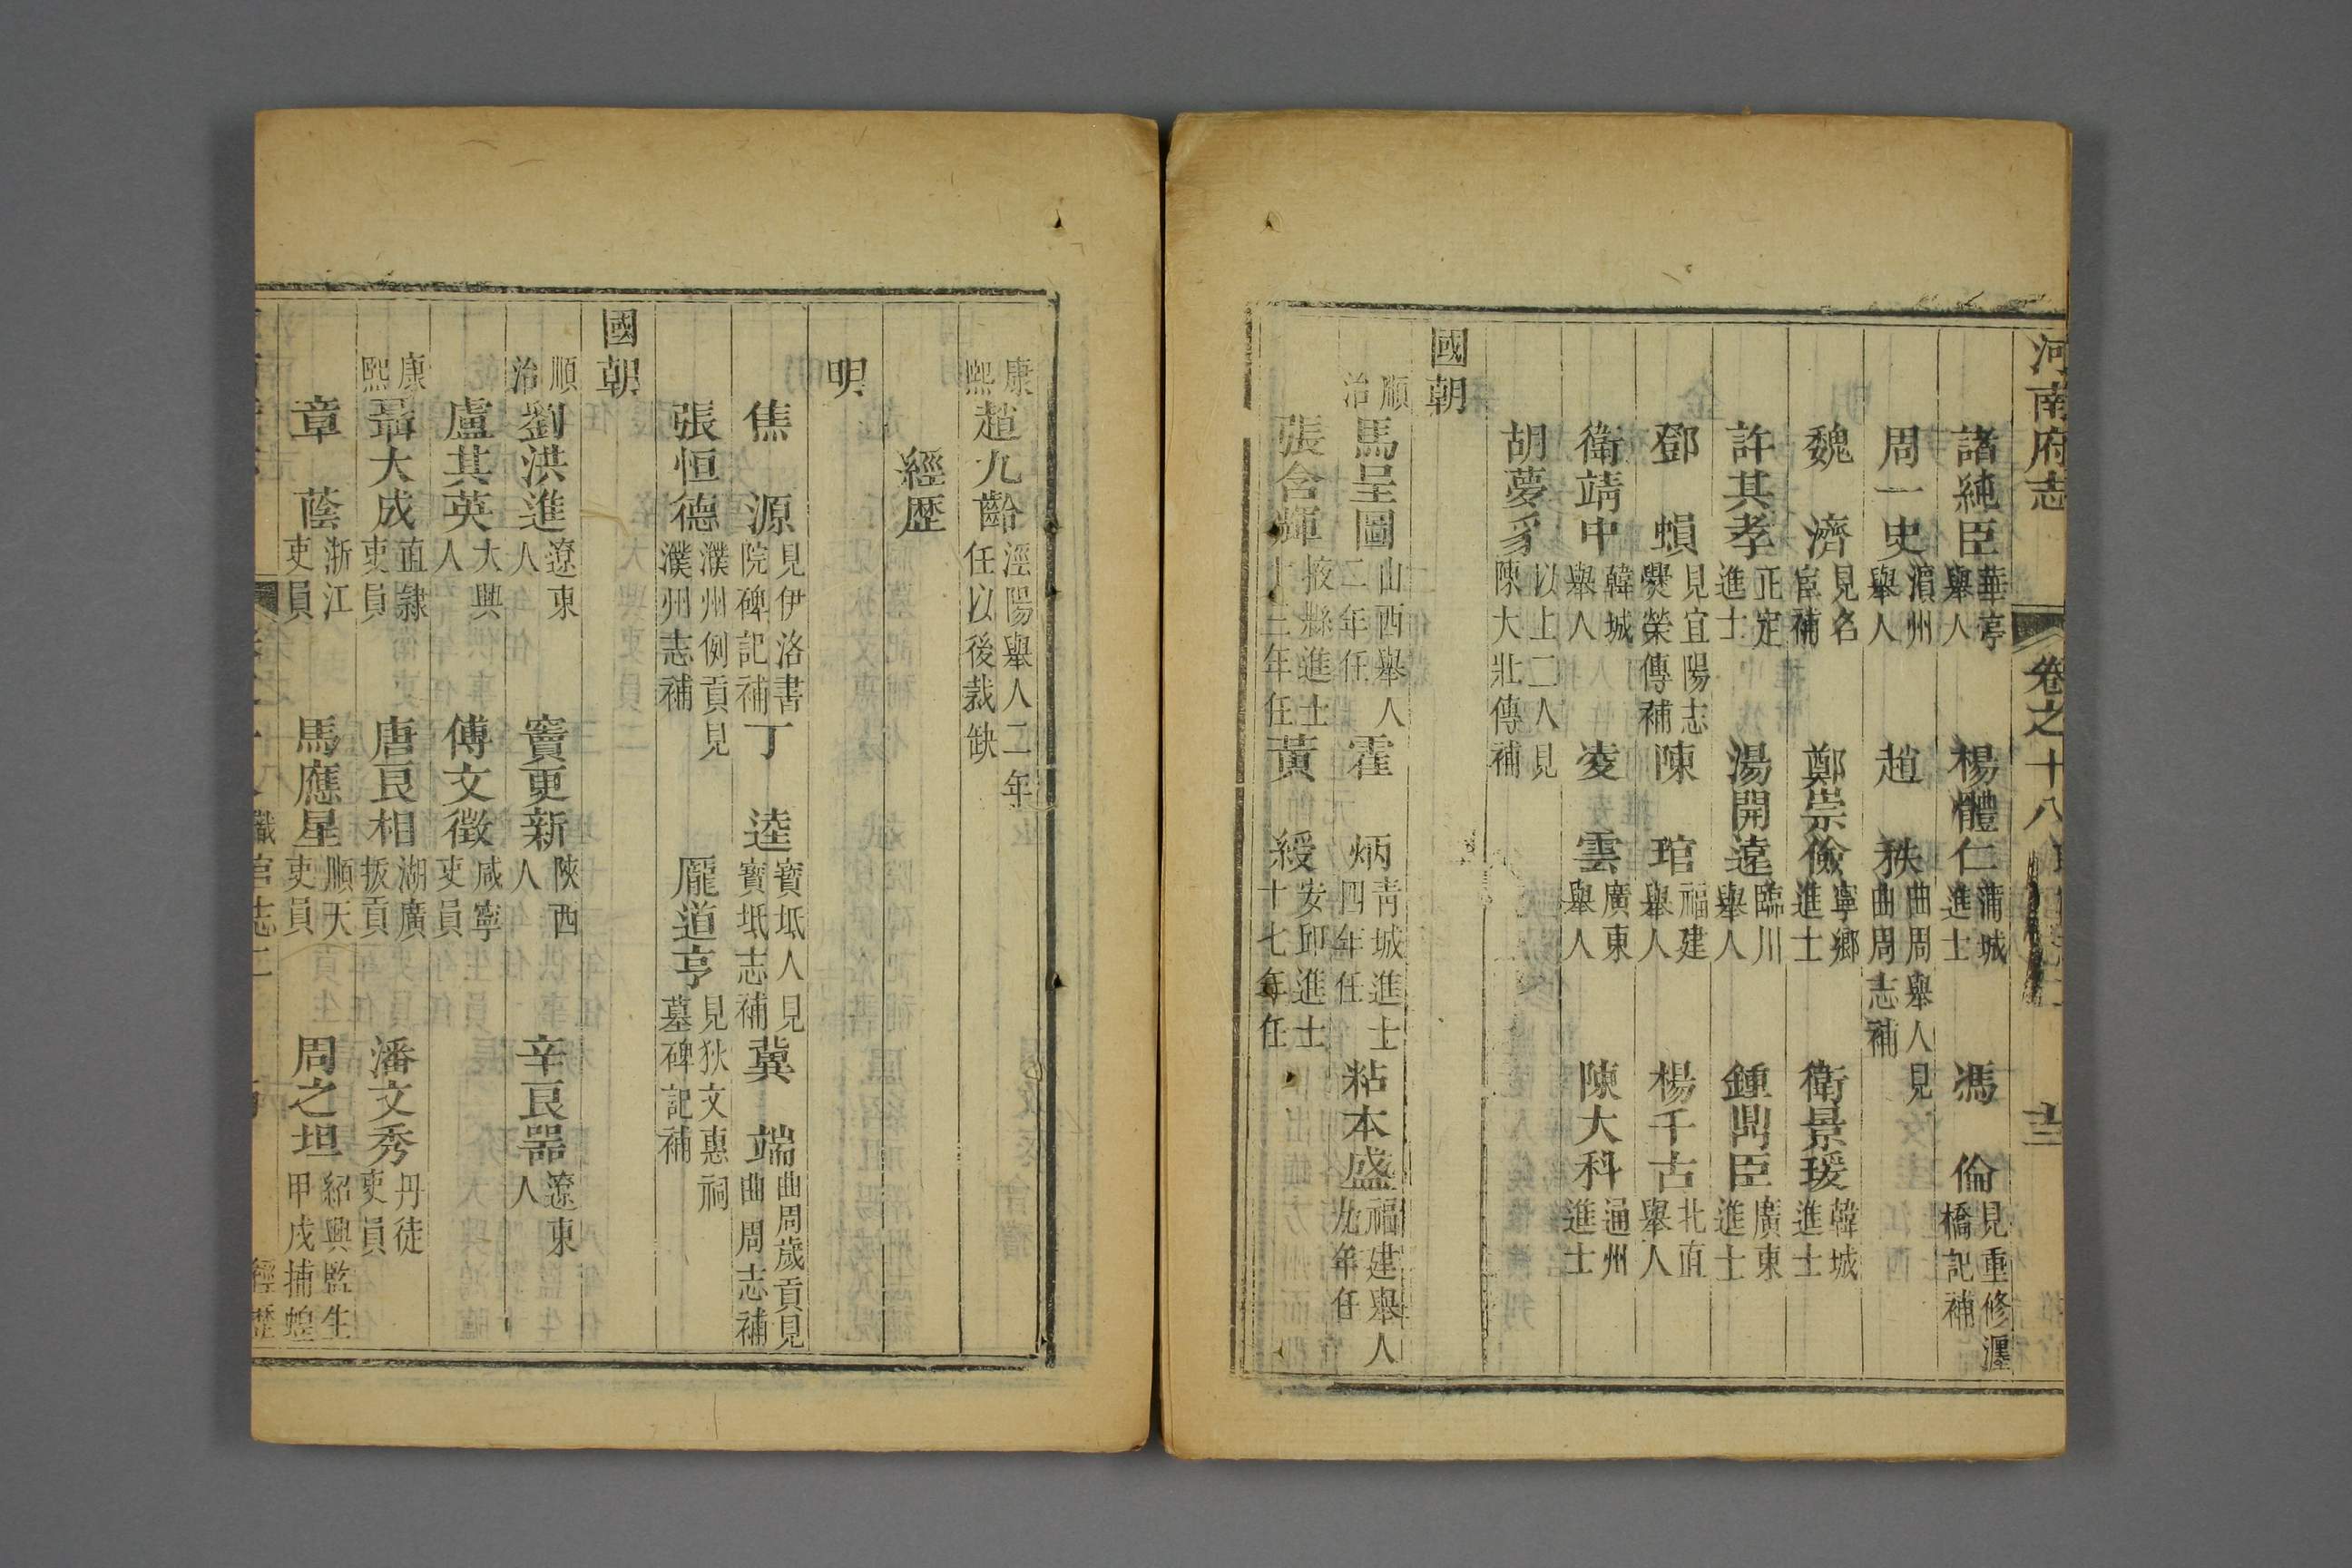 河南府志 卷之十八
諸純臣華亭舉人 楊體仁蒲城進士 馮倫見重修瀍橋記補
周一史濵州舉人 趙秩曲周舉人見曲周志補
魏濟見名宦補 鄭崇儉寧鄉進士 衛景瑗韓城進士
許其孝正定進士 湯開遠臨川舉人 鍾鼎臣廣東進士
鄧蜎見宜陽志㸑榮傳補 陳琯福建舉人 楊千古北直舉人
衛靖中韓城舉人 凌雲廣東舉人 陳大科通州進士
胡夢豸以上二人見陳大壯傳補
國朝
順治馬呈圖山西舉人二年任 霍炳青城進士四年任 粘本盛福建舉人九年任
張含輝掖縣進士十三年任 黃綬安邱進士十七年任
康熙趙九齡涇陽舉人二年任以後裁缺
經歷
明
焦源見伊洛書院碑記補 丁逵寶坻人見寶坻志補 冀端曲周歲貢見曲周志補
張恒德濮州例貢見濮州志補 龎道亨見狄文惠祠墓碑記補
國朝
順治劉洪進遼東人 竇更新陝西人 辛良器遼東人
盧其英大興人 傅文徵咸寧吏員
康熙聶大成直隸吏員 唐良相湖廣拔貢 潘文秀丹徒吏員
章蔭浙江吏員 馬應星順天吏員 周之坦紹興監生甲戌捕蝗
職官志二 經歷